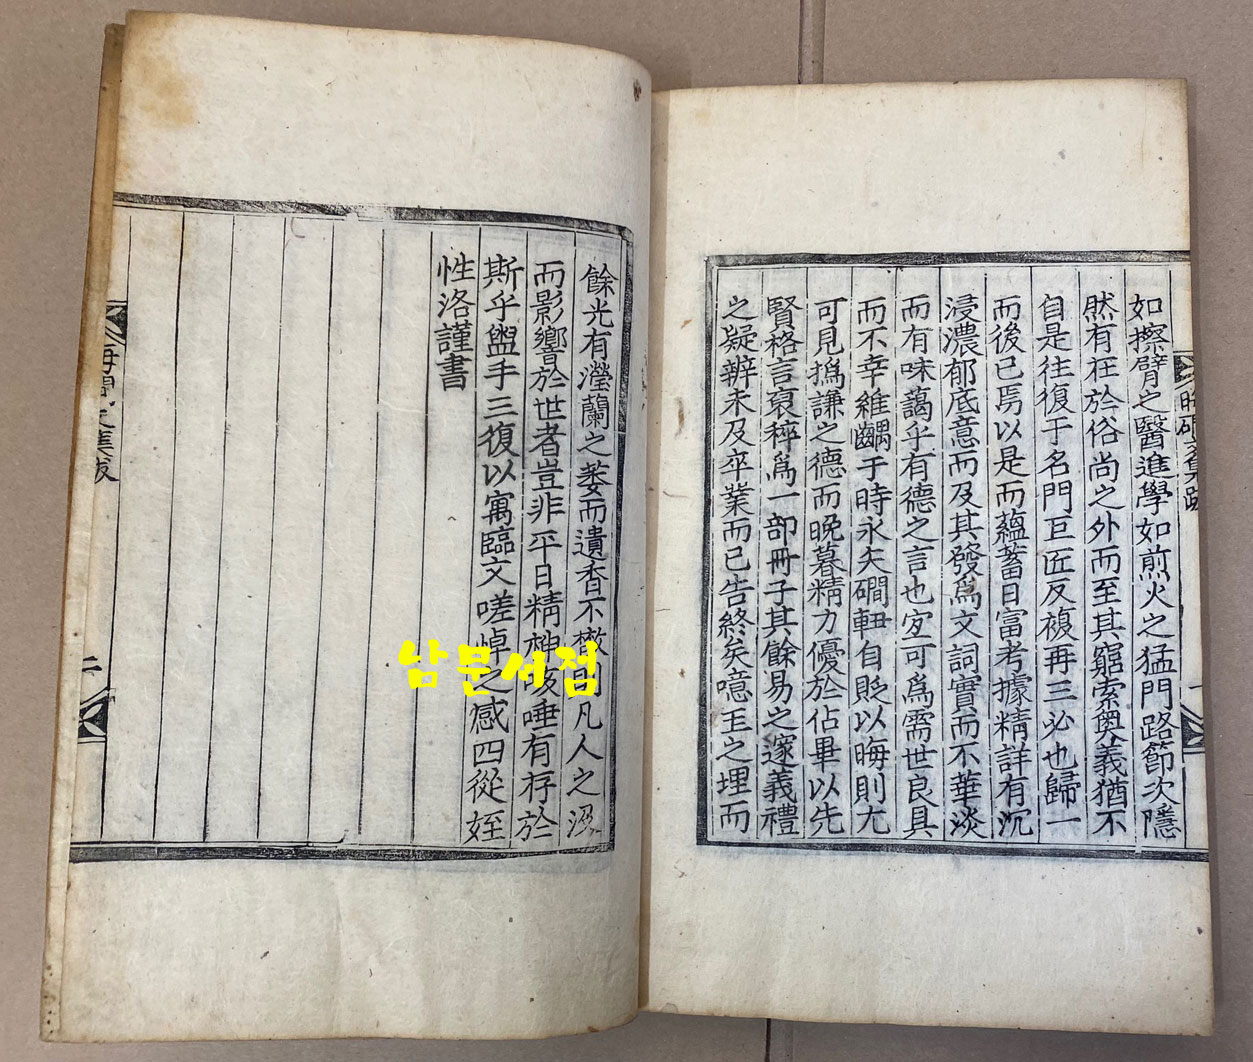 如擦臂之醫進學如煎火之猛門路節次隱
然有在於俗尚之外而至其窮索奧義猶不
自是往復于名門巨匠反複再三必也歸一
而後已焉以是而蘊蓄日富考據精詳有沉
浸濃郁底意而及其發爲文詞實而不華淡
而有味藹乎有德之言也宜可爲需世良具
而不幸維齲于時永矢磵軸自貶以晦則尤
可見撝謙之德而晩暮精力優於佔畢以先
賢格言裒稡爲一部冊子其餘易之邃義禮
之疑辨未及卒業而已告終矣噫玉之埋而
餘光有瀅蘭之萎而遺香不散則凡人之
而影響於世者豈非平日精神咳唾有存於
斯乎盥手三復以寓臨文嗟悼之感四從姪
性洛謹書
남문서점